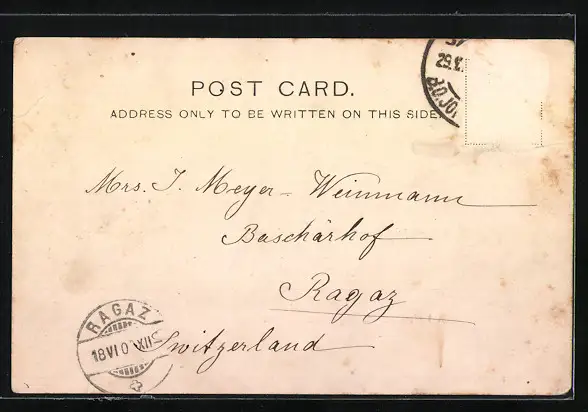 POST CARD.
ADDRESS ONLY TO BE WRITTEN ON THIS SIDE
29.V.
Mrs. J. Meyer-Weinmann
Baschärhof
Ragaz
Switzerland
RAGAZ
18 VI 0 XII